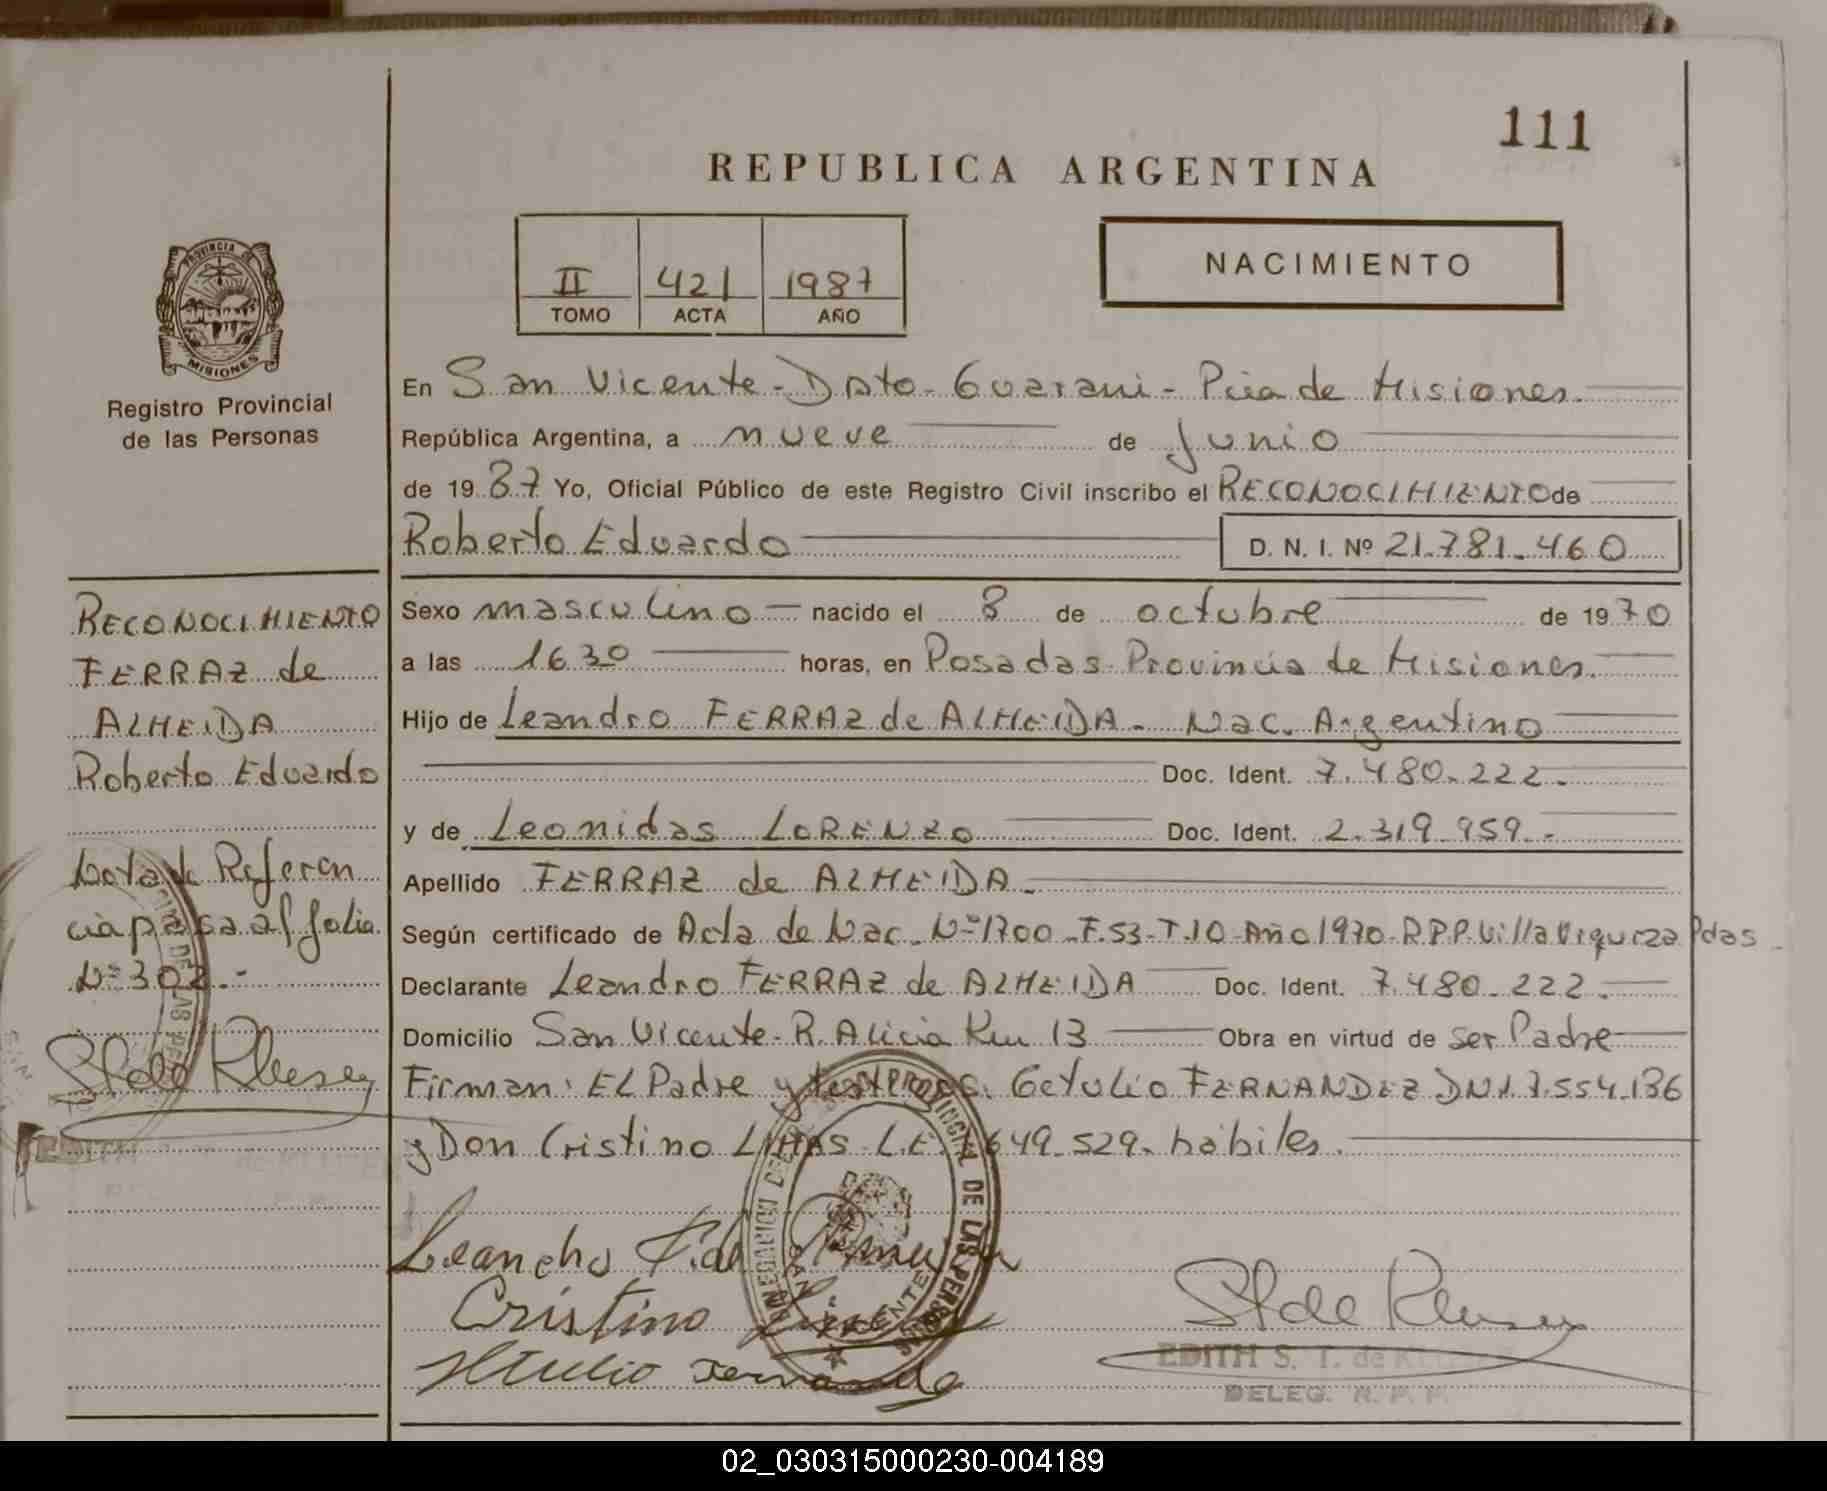 111
REPUBLICA ARGENTINA
II 421 1987
TOMO ACTA AÑO
NACIMIENTO
PROVINCIA DE
MISIONES
Registro Provincial
de las Personas
En San Vicente - Dpto - Guarani - Pcia de Misiones.
República Argentina, a nueve de Junio
de 1987 Yo, Oficial Público de este Registro Civil inscribo el RECONOCIMIENTO de
Roberto Eduardo D. N. I. Nº 21.781.460
Sexo masculino nacido el 8 de octubre de 1970
a las 16 30 horas, en Posadas - Provincia de Misiones.
Hijo de Leandro FERRAZ de ALMEIDA - Nac. Argentino
Doc. Ident. 7.480.222.-
y de Leonidas LORENZO Doc. Ident. 2.319.959.-
Apellido FERRAZ de ALMEIDA.-
Según certificado de Acta de Nac. Nº 1700 - F.53 - T.10 - Año 1970 - R.P.P. Villa Urquiza Pdas
Declarante Leandro FERRAZ de ALMEIDA Doc. Ident. 7.480.222.-
Domicilio San Vicente - R. Alicia Km 13 Obra en virtud de ser Padre
Firman: EL Padre y testigos: Getulio FERNANDEZ DNI. 7.554.136
y Don Cristino LIMAS L.E. 649.529. hábiles.
RECONOCIMIENTO
FERRAZ de
ALMEIDA
Roberto Eduardo
Nota de Referen
cia pasa al folio
Nº 302.-
Cristino
EDITH S. T. de
DELEG. R. P. P.
DELEGACION PROVINCIAL DE LAS PERSONAS
SAN VICENTE
02_030315000230-004189